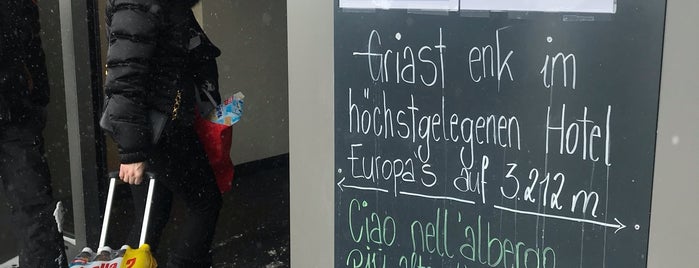 Griast enk im
höchstgelegenen Hotel
Europa's auf 3.212 m
Ciao nell'albergo